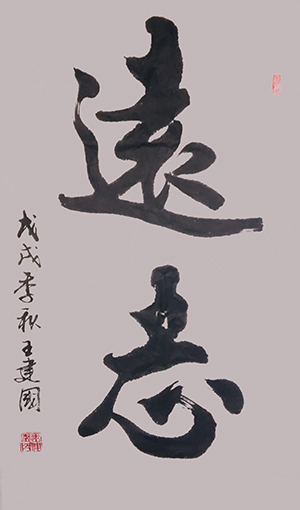 遠志
戊戌季秋王建國